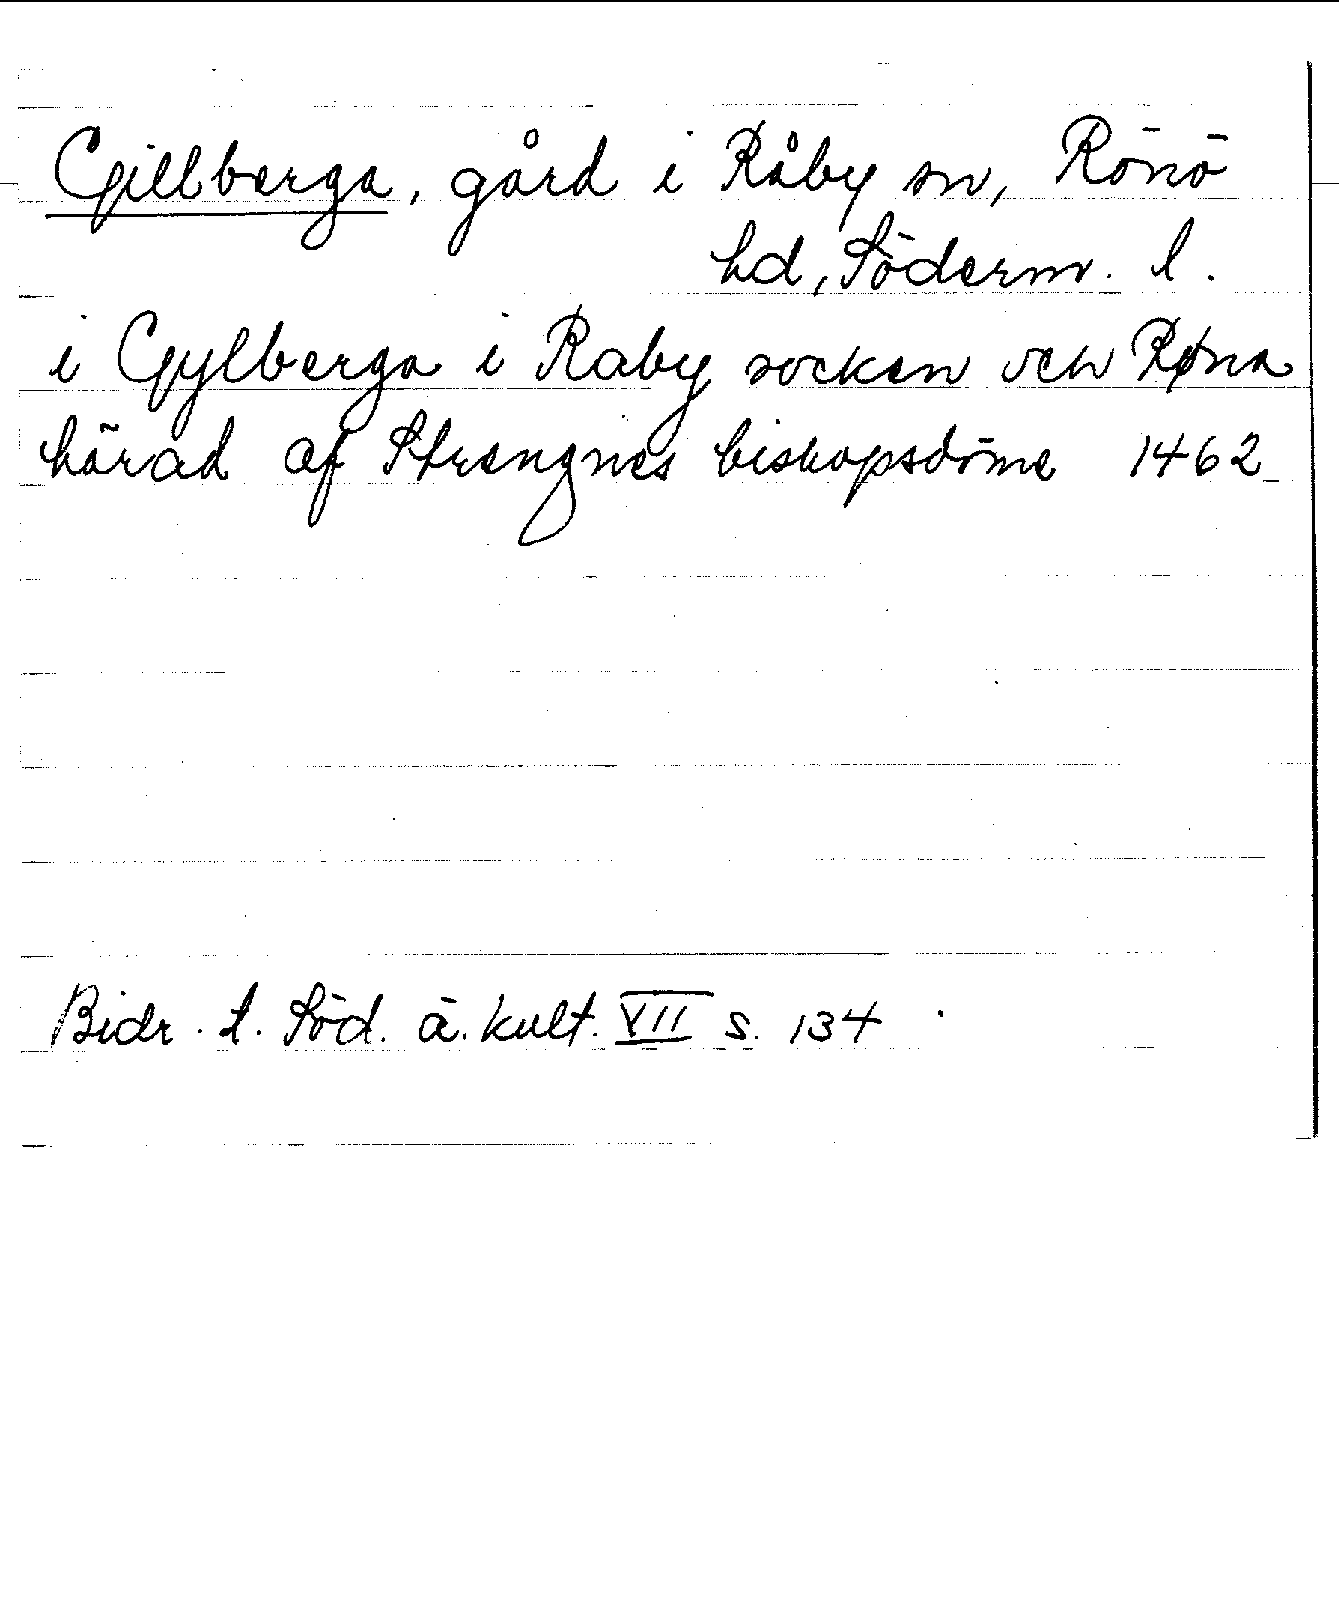 Gillberga, gård i Råby sn, Rönö
hd, Söderm. l.
i Gylberga i Raby socken och Røna
härad af Strengnes biskopsdöme 1462
Bidr. t. Söd. ä. kult. VII s. 134